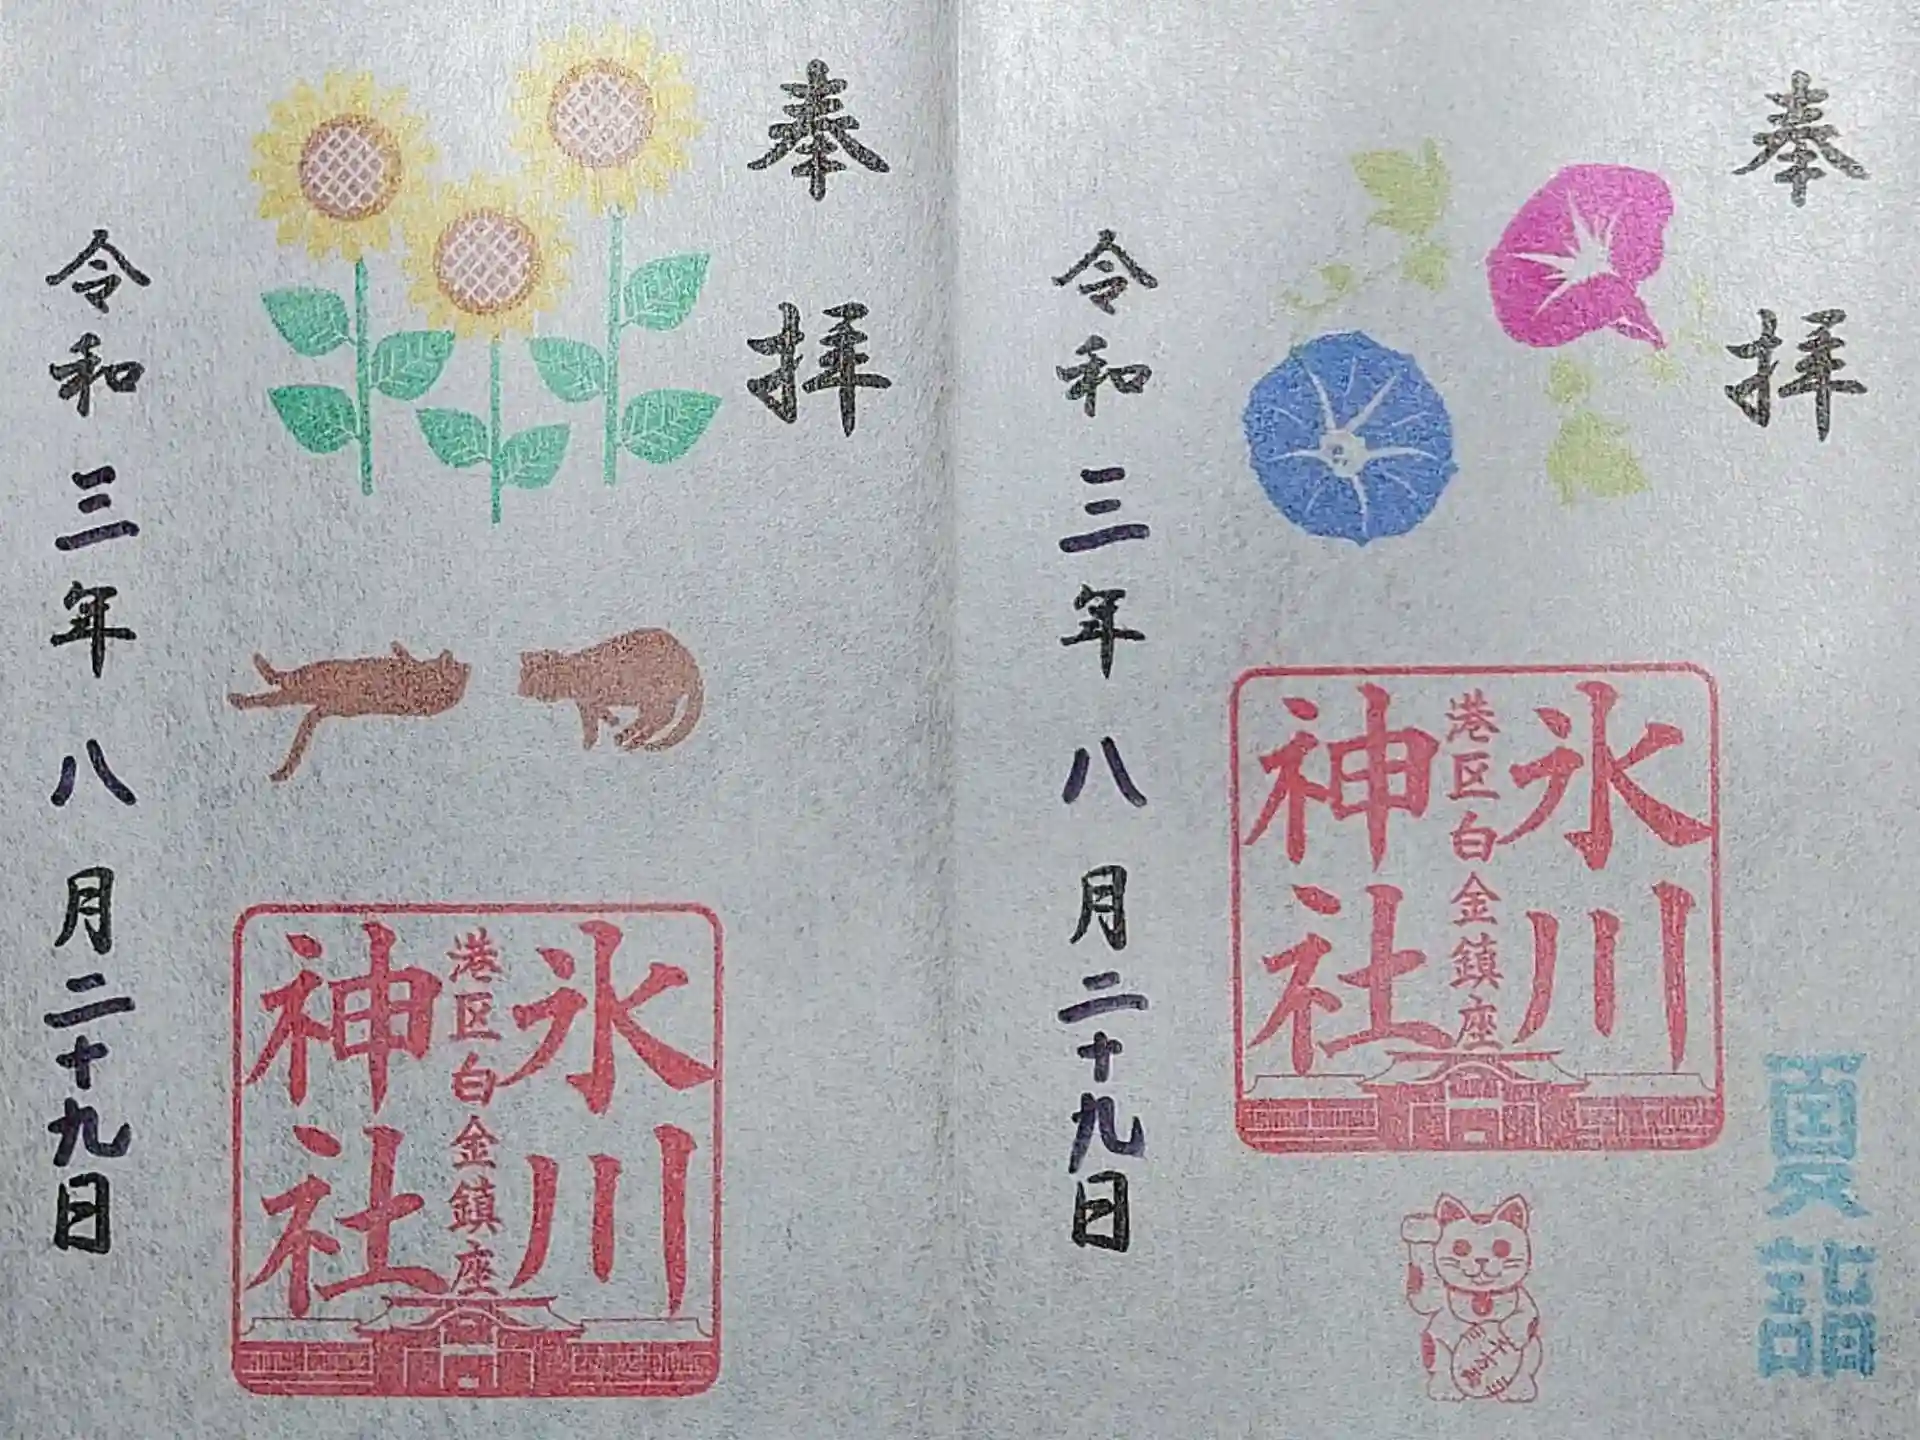 奉拝
氷川
港区白金鎮座
神社
夏詣
令和三年八月二十九日
奉拝
氷川
港区白金鎮座
神社
令和三年八月二十九日